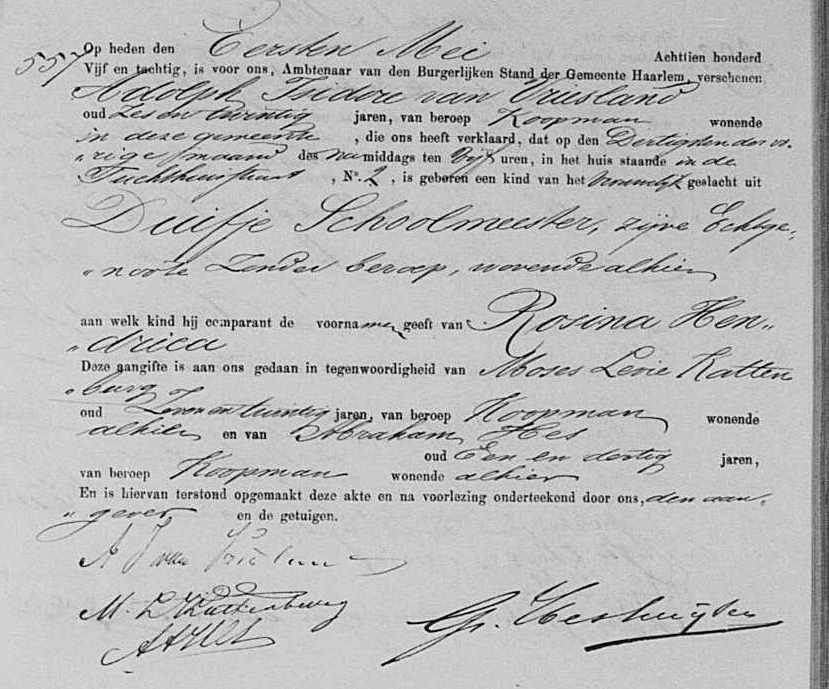 557 Op heden den Eersten Mei Achttien honderd
Vijf en tachtig, is voor ons, Ambtenaar van den Burgerlijken Stand der Gemeente Haarlem, verschenen
Adolph Isidore van Vriesland
oud Zes en twintig jaren, van beroep Koopman wonende
in deze gemeente, die ons heeft verklaard, dat op den Dertigsten der vo„
„rige maand des namiddags ten Vijf uren, in het huis staande in de
Tuchthuisstraat, No. 2, is geboren een kind van het vrouwelijk geslacht uit
Duifje Schoolmeester, zijne Echtge„
„noote Zonder beroep, wonende alhier
aan welk kind hij comparant de voornamen geeft van Rosina Hen„
„drica
Deze aangifte is aan ons gedaan in tegenwoordigheid van Moses Levie Katten
„burg
oud Zeven en twintig jaren, van beroep Koopman wonende
alhier en van Abraham Hes
oud Een en dertig jaren,
van beroep Koopman wonende alhier
En is hiervan terstond opgemaakt deze akte en na voorlezing onderteekend door ons, den aan„
„gever en de getuigen.
A I van Vriesland
M. L. Kattenburg
A Hes